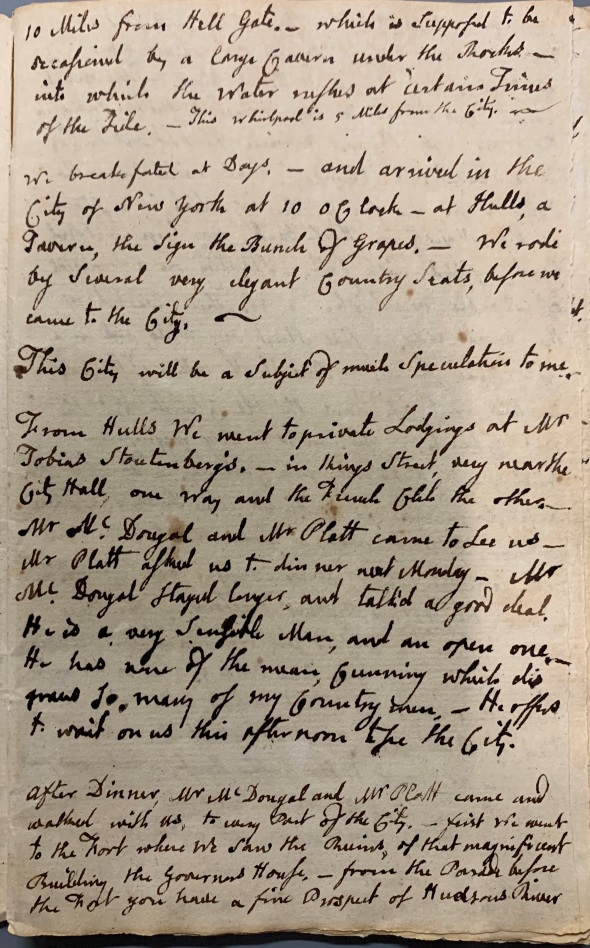 10 Miles from Hell Gate. — which is supposed to be
occasioned by a large Cavern under the Rocks —
into which the Water rushes at certain Times
of the Tide. — This whirlpool is 5 Miles from the City. —
We breakfasted at Days. — and arrived in the
City of New York at 10 O Clock — at Hulls, a
Tavern, the Sign the Bunch of Grapes. — We rode
by Several very elegant Country Seats, before we
came to the City. —
This City will be a Subject of much Speculation to me. —
From Hulls We went to private Lodgings at Mr
Tobias Stoutenberg's. — in Kings Street, very near the
City Hall, one way and the French Chh. the other. —
Mr McDougal and Mr Platt came to see us —
Mr Platt asked us to dinner next Monday — Mr
McDougal Stayed longer, and talk'd a good deal.
He is a very Sensible Man, and an open one —
He has none of the mean Cunning which dis
graces So many of my Country men. — He offers
to wait on us this afternoon to see the City.
After Dinner, Mr McDougal and Mr Platt came and
walked with us, to every Part of the City. — first We went
to the Fort where We Saw the Ruins, of that magnificent
Building the Governors House. — from the Parade before
the Fort you have a fine Prospect of Hudsons River